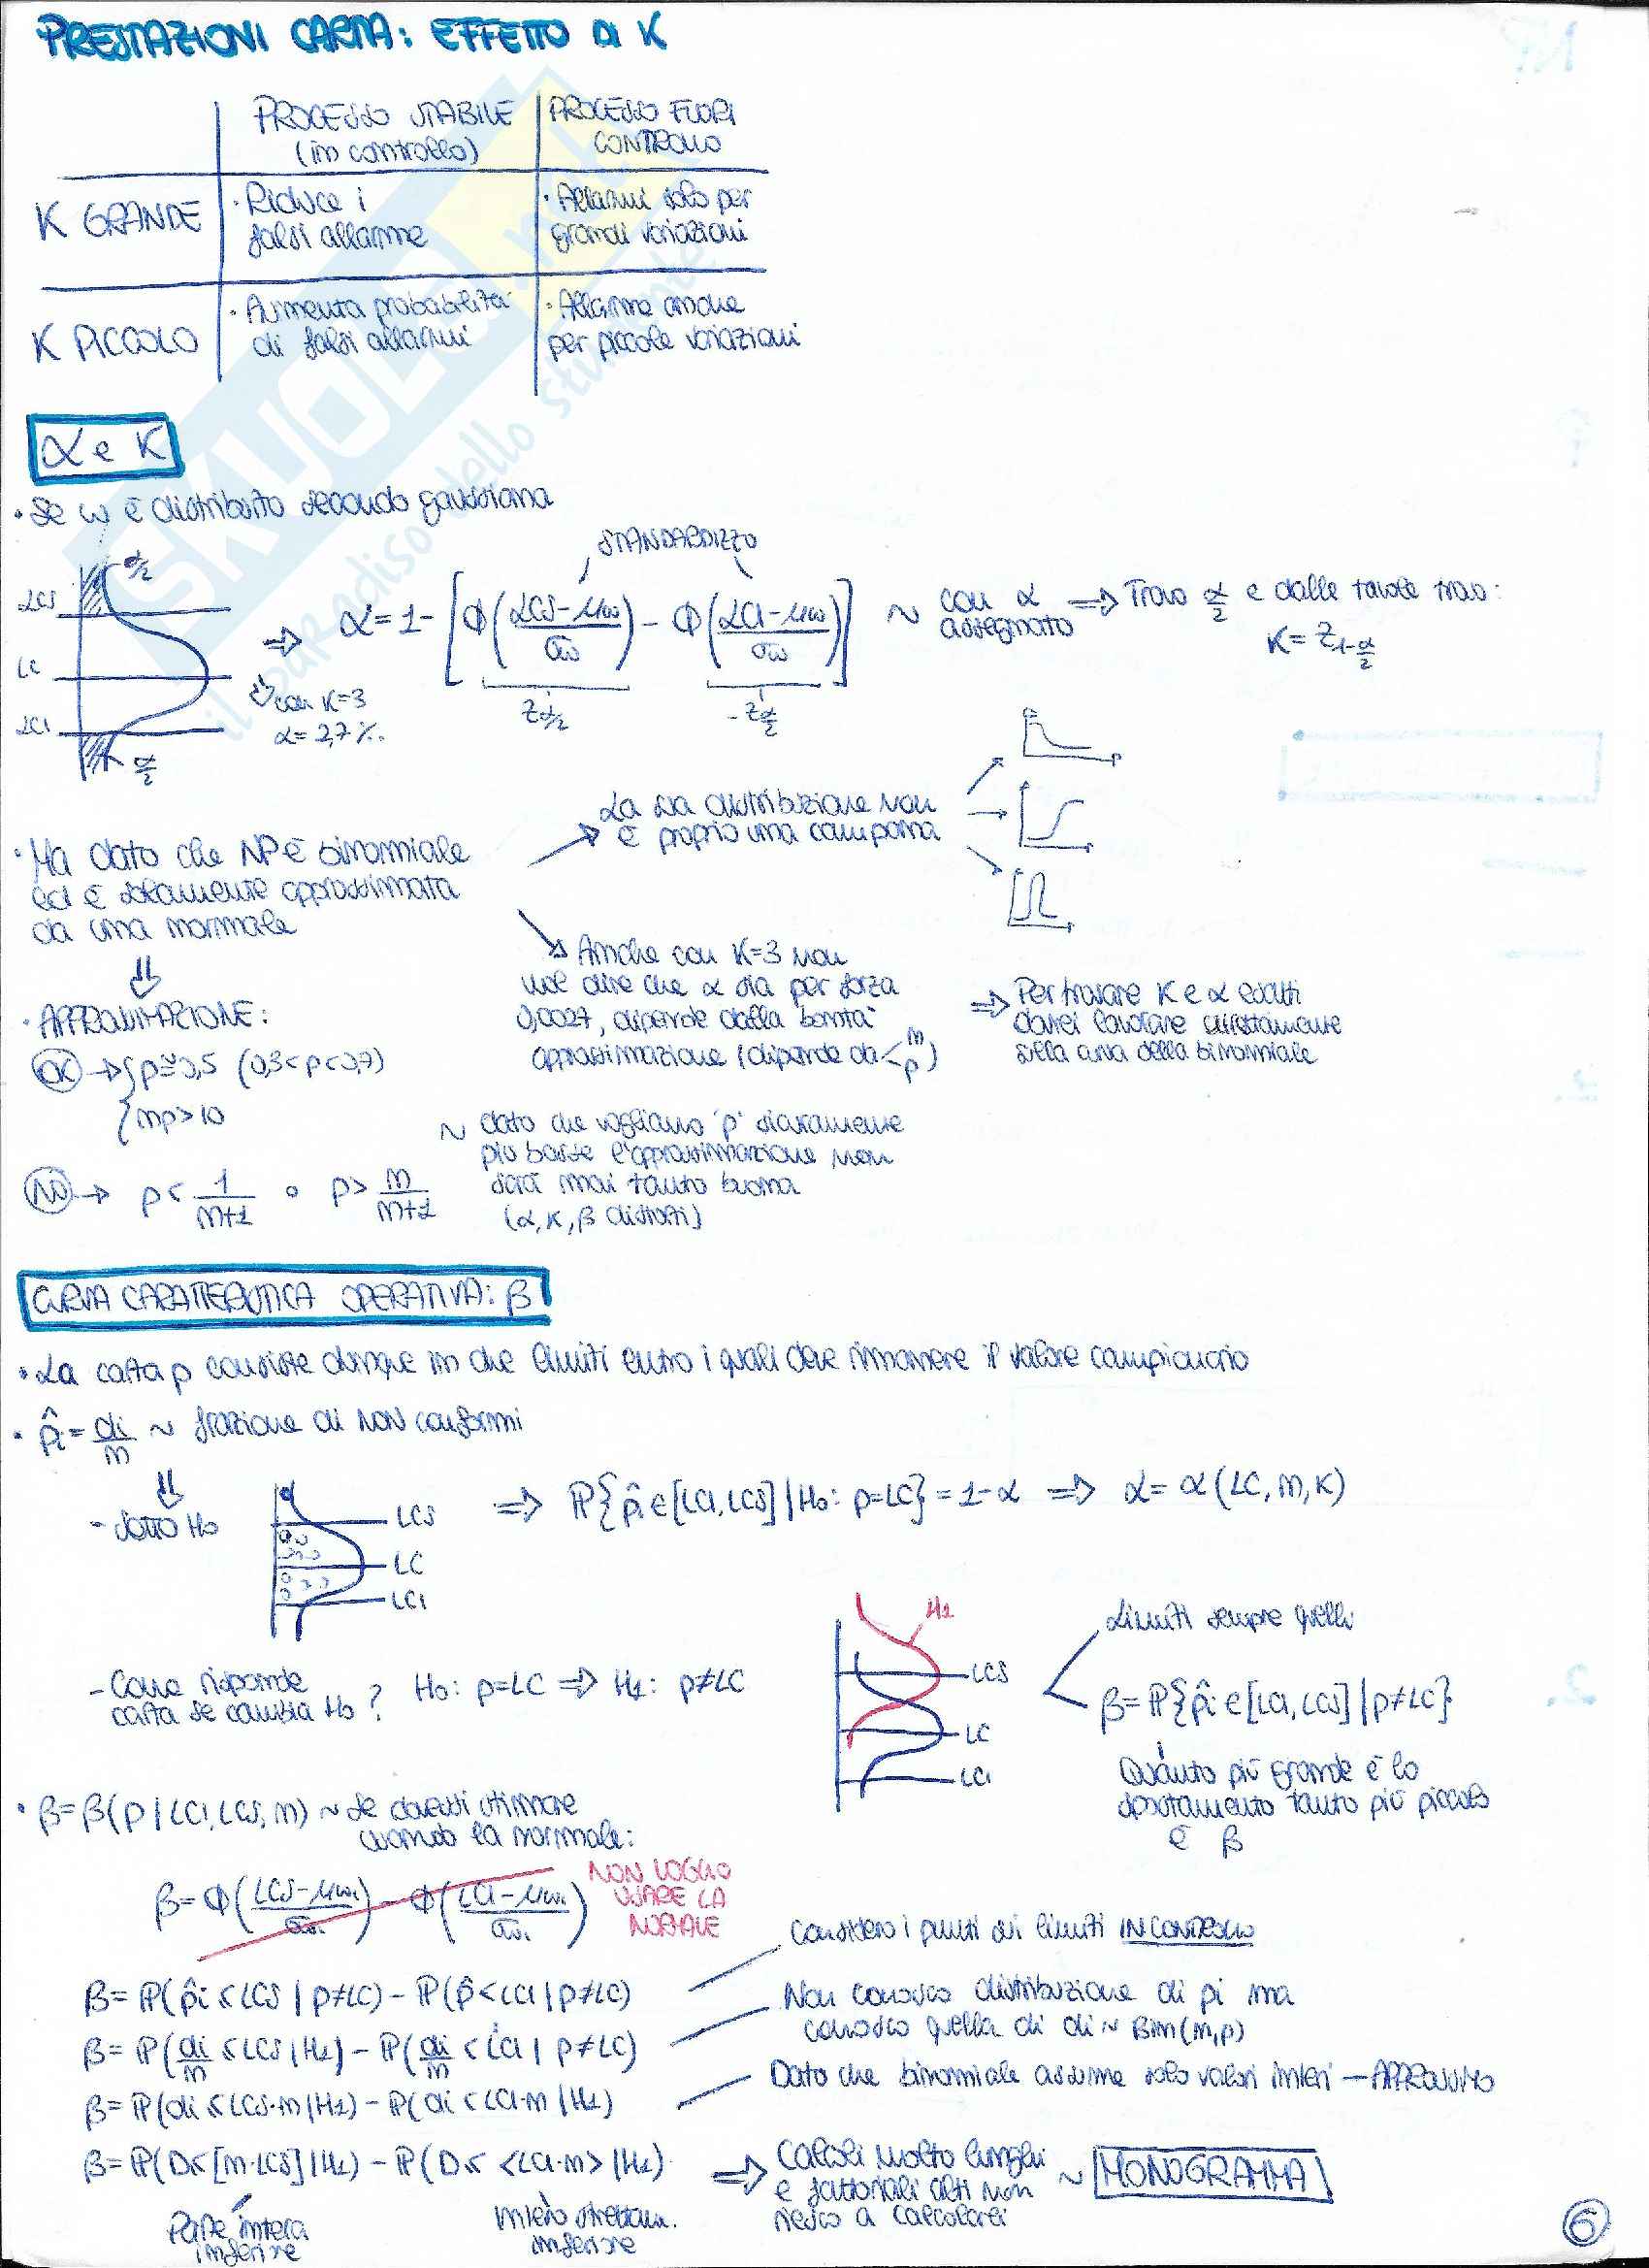 PRESTAZIONI CARTA: EFFETTO DI K
PROCESSO STABILE
(in controllo)
PROCESSO FUORI
CONTROLLO
K GRANDE
· Riduce i
falsi allarme
· Allarmi solo per
grandi variazioni
K PICCOLO
· Aumenta probabilità
di falsi allarmi
· Allarme anche
per piccole variazioni
α e K
· Se ω è distribuito secondo gaussiana
STANDARDIZZO
α/2
LCS
LC
LCI
α/2
⇒ α = 1 - [Φ((LCS-μω)/σω) - Φ((LCI-μω)/σω)] ~ con α assegnato ⇒ Trovo α/2 e dalle tavole trovo:
K = Z1-α/2
Zα/2
-Zα/2
con K=3
α = 2,7‰
· Ma dato che NP è binomiale
ed è solamente approssimata
da una normale
La sua distribuzione non
è proprio una campana
p
Anche con K=3 non
vuol dire che α sia per forza
0,0027, dipende dalla bontà
approssimazione (dipende da < n p)
⇒ Per trovare K e α esatti
dovrei lavorare direttamente
sulla curva della binomiale
· APPROSSIMAZIONE:
OK → { p≅0,5 (0,3<p<0,7)
np>10
NO → p < 1/(n+1) o p > n/(n+1)
~ dato che vogliamo 'p' sicuramente
più basse l'approssimazione non
sarà mai tanto buona
(α, K, β distorti)
CURVA CARATTERISTICA OPERATIVA: β
· La carta p consiste dunque in due limiti entro i quali deve rimanere il valore campionario
· p̂i = di/n ~ frazione di NON conformi
- SOTTO H0
LCS
LC
LCI
⇒ ℙ{p̂i ∈ [LCI, LCS] | H0: p=LC} = 1-α ⇒ α = α(LC, n, K)
- Come risponde
carta se cambia H0 ?
H0: p=LC ⇒ H1: p≠LC
H1
LCS
LC
LCI
Limiti sempre quelli
β = ℙ{p̂i ∈ [LCI, LCS] | p≠LC}
Quanto più grande è lo
spostamento tanto più piccolo
è β
· β = β(p | LCI, LCS, n) ~ Se dovessi stimare
usando la normale:
β = Φ((LCS-μω1)/σω1) - Φ((LCI-μω1)/σω1)
NON VOGLIO
USARE LA
NORMALE
β = ℙ(p̂i ≤ LCS | p≠LC) - ℙ(p̂ < LCI | p≠LC)
Considero i punti sui limiti IN CONTROLLO
β = ℙ(di/n ≤ LCS | H1) - ℙ(di/n < LCI | p≠LC)
Non conosco distribuzione di pi ma
conosco quella di di ~ Bin(n,p)
β = ℙ(di ≤ LCS·n | H1) - ℙ(di < LCI·n | H1)
Dato che binomiale assume solo valori interi – APPROSSIMO
β = ℙ(D ≤ [n·LCS] | H1) - ℙ(D ≤ <LCI·n> | H1)
Parte intera
inferiore
intero strettam.
inferiore
⇒ Calcoli molto lunghi
e fattoriali alti non
riesco a calcolarci
~ MONOGRAMMA
6
SKUOLA.net
il paradiso dello studente